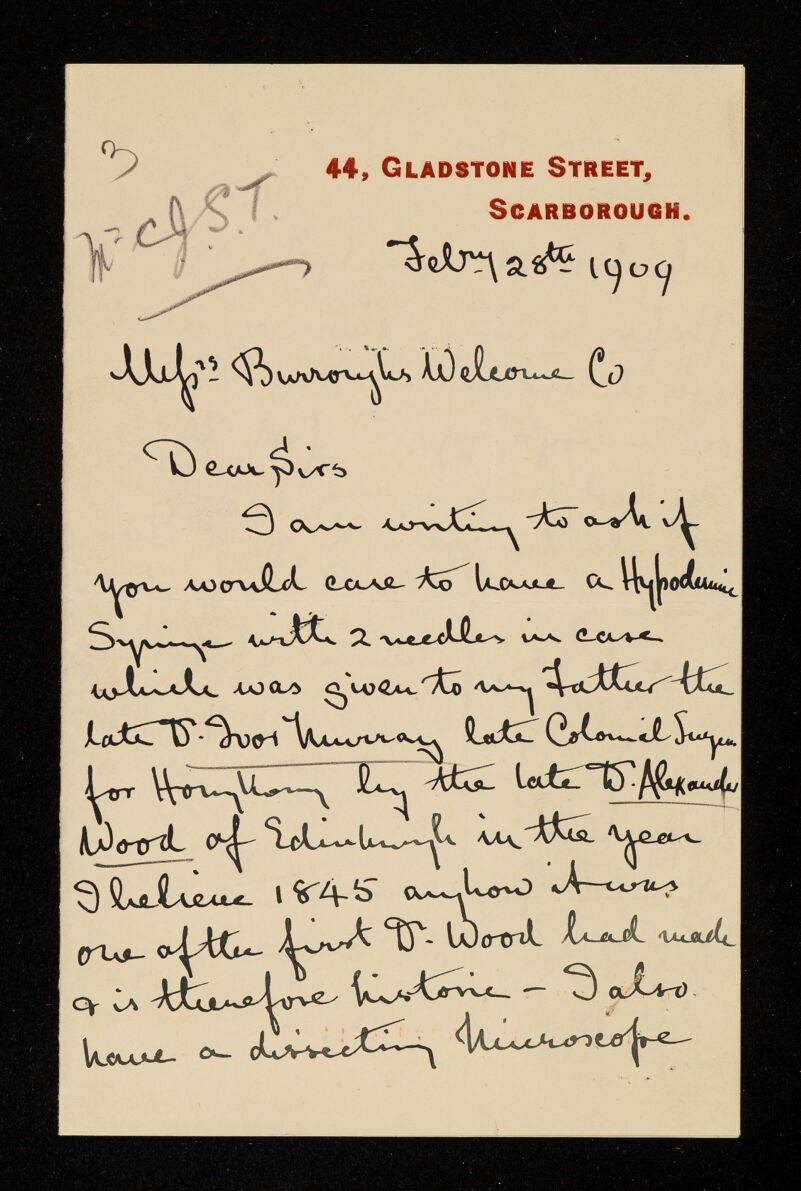 3
Mr C J. S. T.
44, GLADSTONE STREET,
SCARBOROUGH.
Febry 28th 1909
Messrs Burroughs Welcome Co
Dear Sirs
I am writing to ask if
you would care to have a Hypodermic
Syringe with 2 needles in case
which was given to my Father the
late Dr. Ivor Murray late Colonial Surgeon
for Hongkong by the late Dr. Alexander
Wood of Edinburgh in the year
I believe 1845 anyhow it was
one of the first Dr. Wood had made
& is therefore historic - I also
have a dissecting Microscope